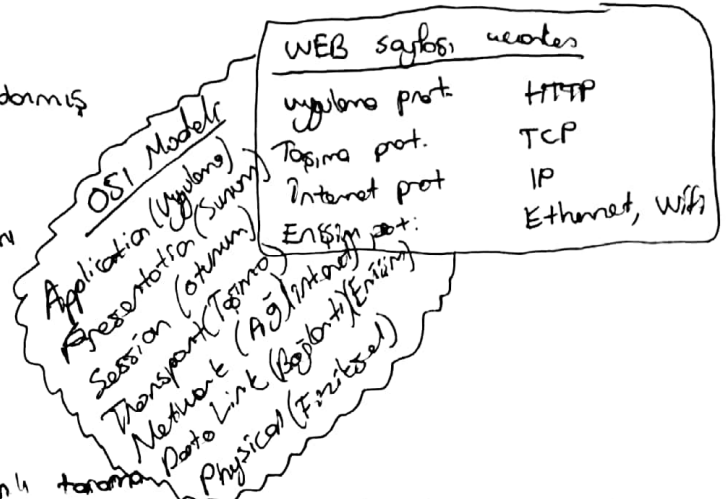 WEB sayfası
uygulama prot. HTTP
Taşıma prot. TCP
İnternet prot IP
Erişim prot: Ethernet, Wifi
OSI Modeli
Application (Uygulama)
Presentation (Sunum)
Session (oturum)
Transport (Taşıma)
Network (Ağ) (internet)
Data Link (Bağlantı) (Erişim)
Physical (Fiziksel)
tarama